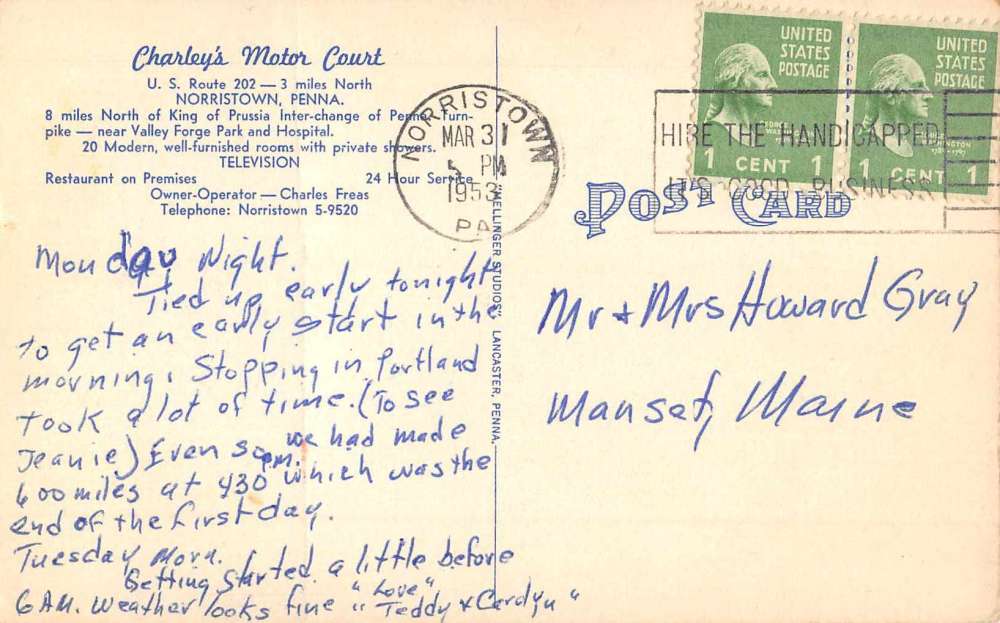 Charley's Motor Court
U. S. Route 202 — 3 miles North
NORRISTOWN, PENNA.
8 miles North of King of Prussia Inter-change of Penna. Turn-
pike — near Valley Forge Park and Hospital.
20 Modern, well-furnished rooms with private showers.
TELEVISION
Restaurant on Premises 24 Hour Service
Owner-Operator — Charles Freas
Telephone: Norristown 5-9520
Monday Night.
Tied up early tonight
to get an early start in the
morning. Stopping in Portland
took a lot of time. (To see
Jeanie) Even so we had made
600 miles at 430 P.M. which was the
end of the first day.
Tuesday Morn.
Getting started a little before
6 AM. Weather looks fine "Love"
"Teddy & Carolyn"
MELLINGER STUDIOS, LANCASTER, PENNA.
NORRISTOWN
MAR 31
5 PM
1953
PA
UNITED
STATES
POSTAGE
1 CENT 1
UNITED
STATES
POSTAGE
1 CENT 1
HIRE THE HANDICAPPED
IT'S GOOD BUSINESS
POST CARD
Mr & Mrs Howard Gray
Manset, Maine